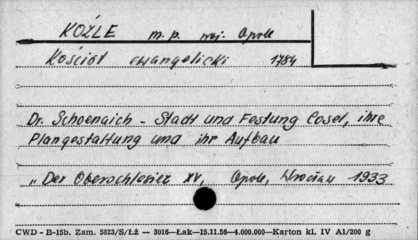 KOŹLE m. p. woj. Opole
Kościół ewangelicki 1784
Dr. Schoenaich - Stadt und Festung Cosel, ihre
Plangestaltung und ihr Aufbau
"Der Oberschlesier XV, Opole, Wrocław 1933
CWD - B-15b. Zam. 5823/S/ŁŻ — 3016—Łak—15.11.56—4.000.000—Karton kl. IV A1/200 g